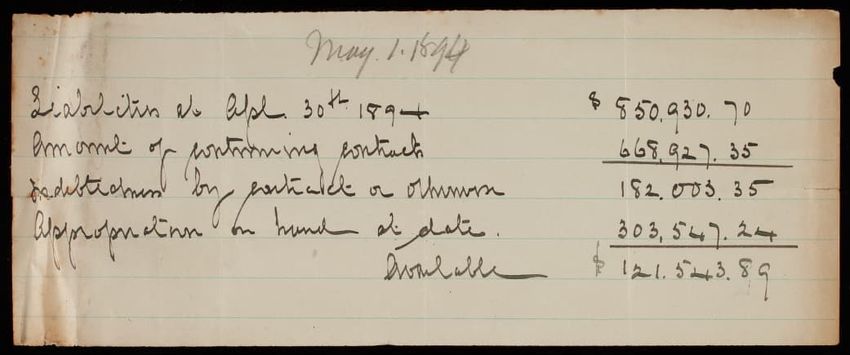 May. 1. 1894
Liabilities at Apl. 30th 1894 $ 850,930.70
Amount of continuing contracts 668,927.35
Indebtedness by contract or otherwise 182.003.35
Appropriation on hand at date. 303,547.24
Available $ 121.543.89